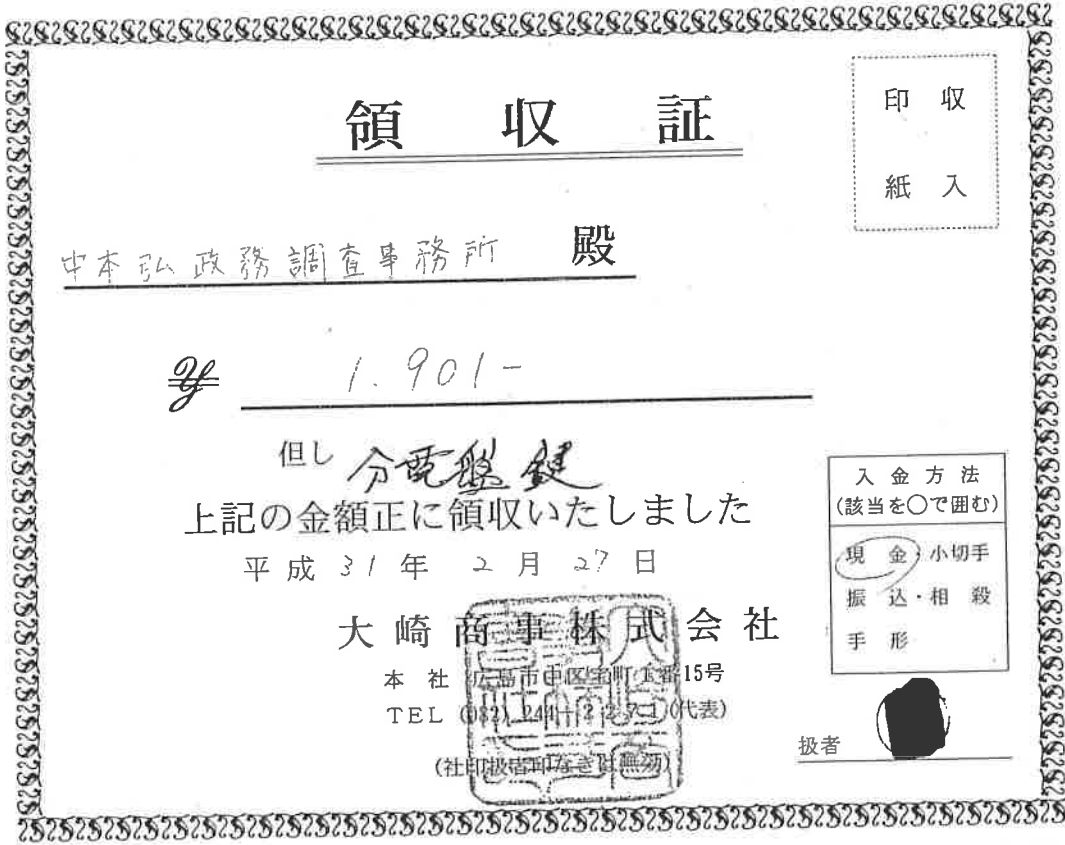 領収証
収入
印紙
中本弘政務調査事務所 殿
¥ 1.901-
但し 分電盤鍵
上記の金額正に領収いたしました
平成31年2月27日
大崎商事株式会社
本社 広島市中区宝町1番15号
TEL (082) 241-2271(代表)
(社印扱者印なきは無効)
入金方法
(該当を〇で囲む)
現金・小切手
振込・相殺
手形
扱者